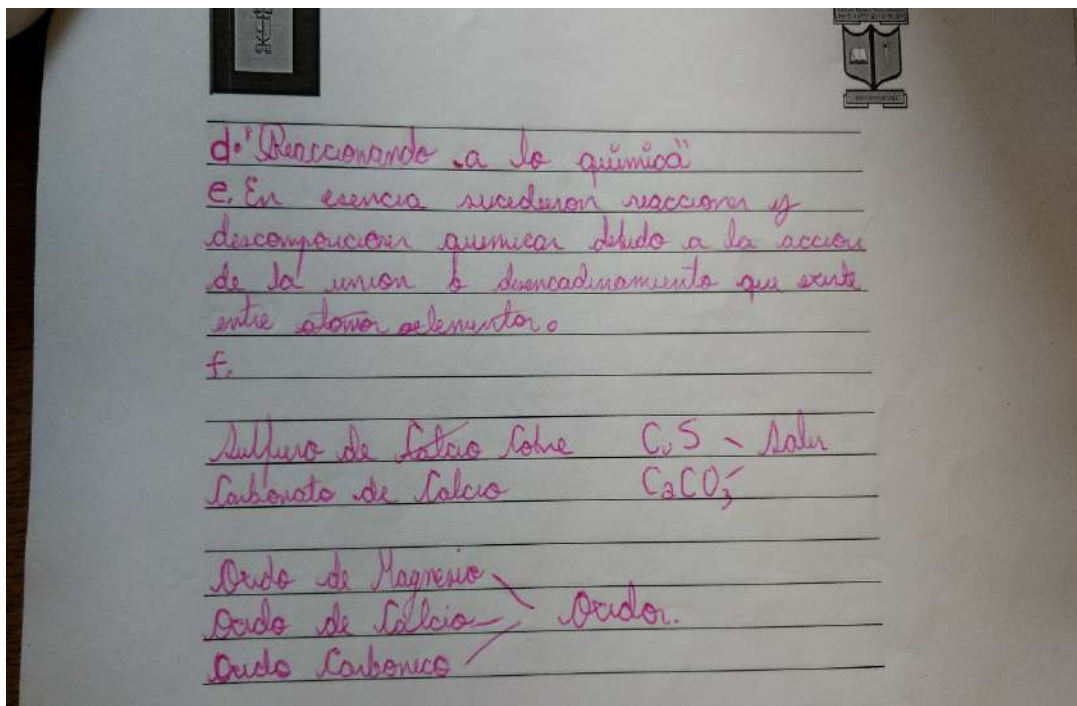 d. "Reaccionando a lo química"
e. En esencia sucedieron reacciones y
descomposición quimicas debido a la acción
de la union o desencadenamiento que existe
entre atomos o elementos.
f.
Sulfuro de Calcio Cobre CuS - Sales
Carbonato de Calcio CaCO3
Oxido de Magnesio
Oxido de Calcio - Oxidos.
Oxido Carbonico